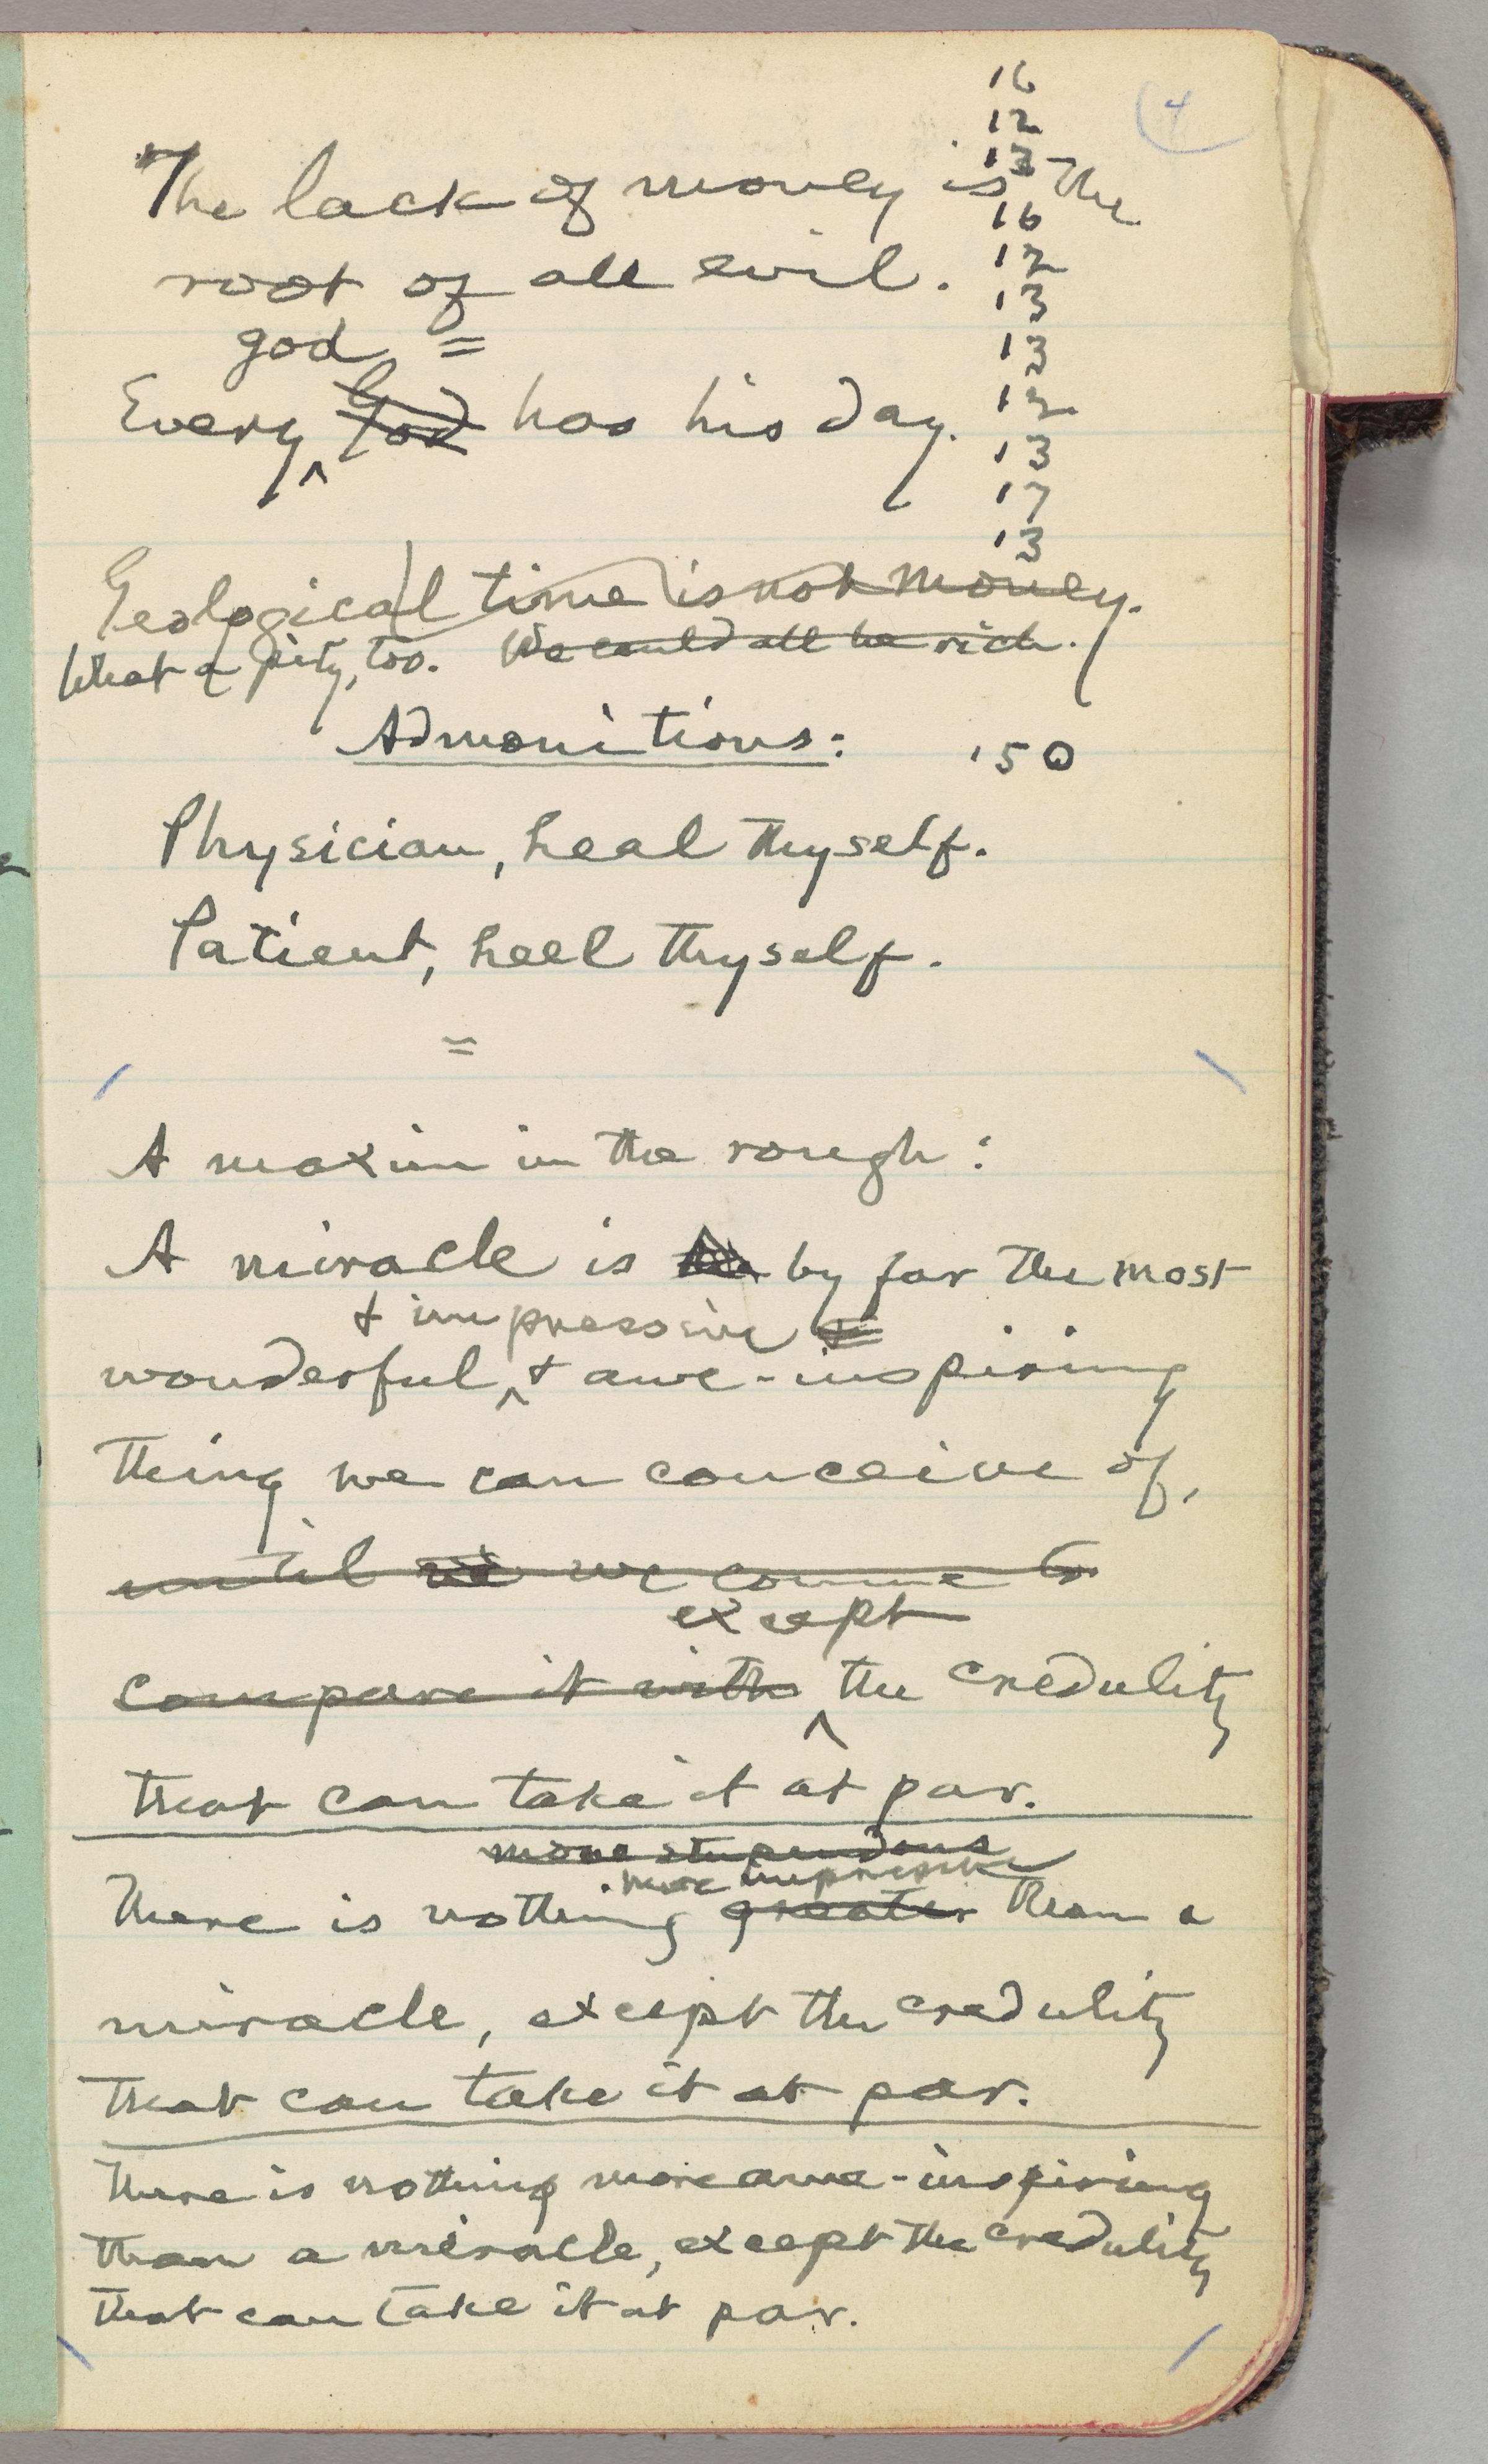 4
16
12
13
16
12
13
13
12
13
17
13
150
The lack of money is the
root of all evil.
god =
Every God has his day.
Geological time is not money.
What a pity, too. We could all be rich.
Admonitions:
Physician, heal thyself.
Patient, heel thyself.
=
A maxim in the rough:
A miracle is by far the most
& impressive
wonderful, & awe-inspiring
thing we can conceive of,
until we come to
except
compare it with the credulity
that can take it at par.
more stupendous
more impressive
There is nothing greater than a
miracle, except the credulity
that can take it at par.
There is nothing more awe-inspiring
than a miracle, except the credulity
that can take it at par.